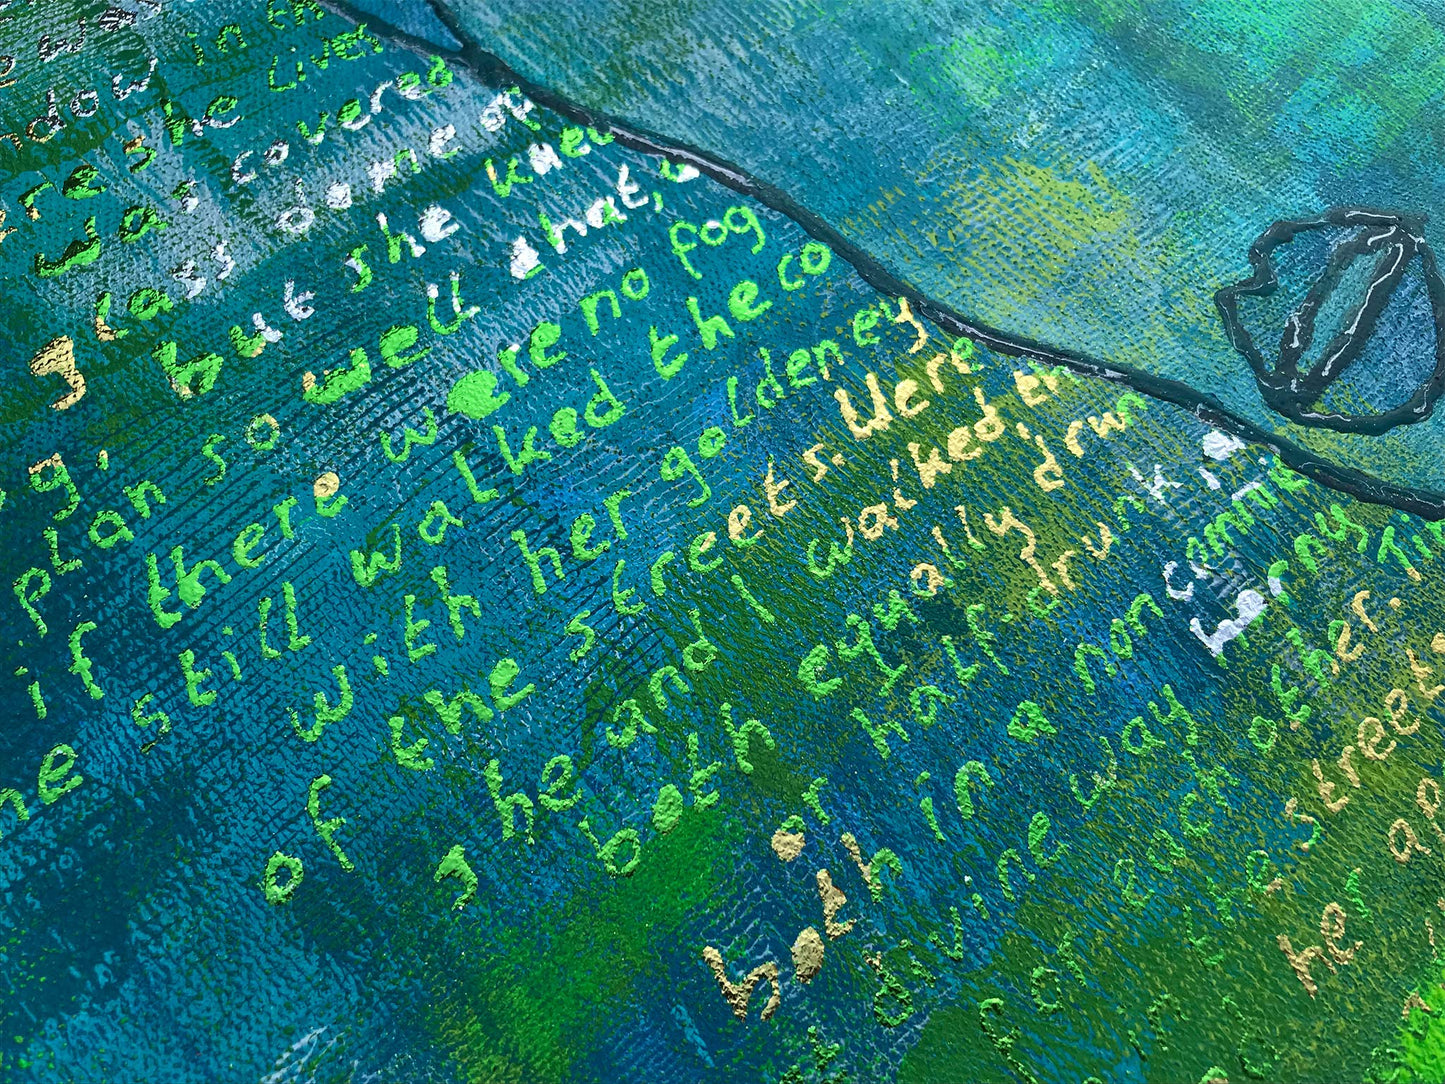 wa
ndow in f
ere she lives
was covered
glass dome of
g, but she knew
plan so well that, u
if there were no fog
he still walked the co
with her golden ey
of the streets. Were
, he and I walked, en
both equally drun
or half drunk, i
both in a non commit
divine way horny
for each other. Ti
the street
he